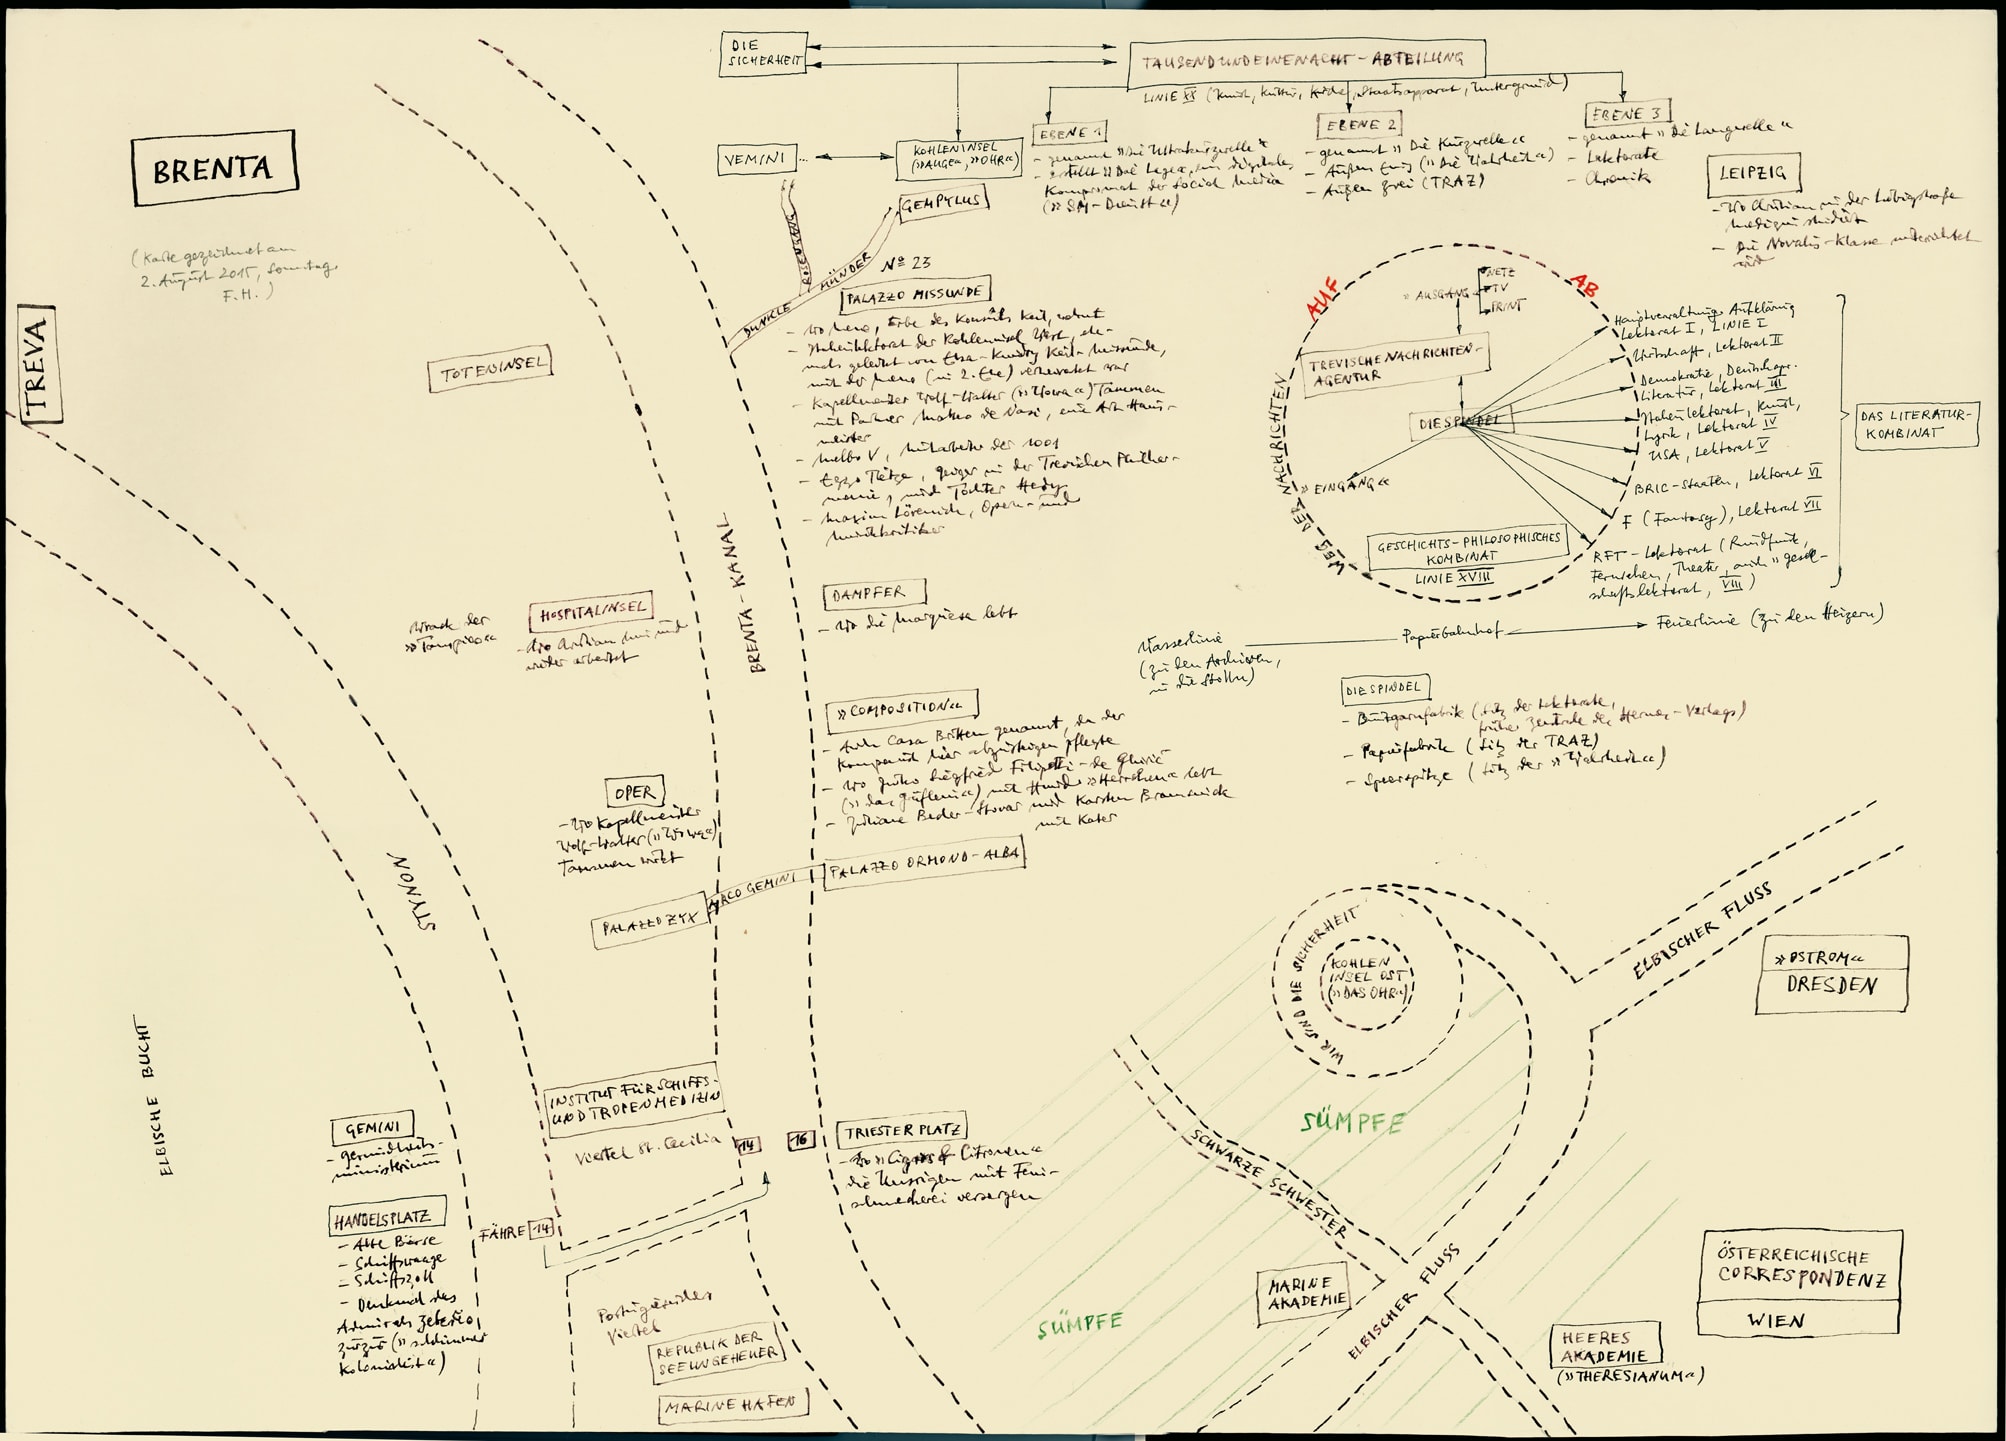 DIE
SICHERHEIT
TAUSENDUNDEINENACHT-ABTEILUNG
LINIE XX (Kunst, Kultur, Kirche, Staatsapparat, Untergrund)
VEMINI...
KOHLENINSEL
(»AUGE«, »OHR«)
EBENE 1
- genannt »Die Ultrakurzwelle«
- erstellt »Die Lage«, ein digitales
Kompromat der Social Media
(»SM-Dienst«)
EBENE 2
- genannt »Die Kurzwelle«
- Außen Eins (»Die Wahrheit«)
- Außen Zwei (TRAZ)
EBENE 3
- genannt »Die Langwelle«
- Lektorate
- Chronik
LEIPZIG
- wo Christian in der Liebigstraße
Medizin studiert
- Die Novalis-Klasse unterrichtet
wird
BRENTA
(Karte gezeichnet am
2. August 2015, Sonntag,
F.H.)
TREVA
GEMPYLUS
ROSENGANG
DUNKLE MÜNDER
Nº 23
PALAZZO MISSUNDE
- wo Meno, Erbe des Konsuls Keil, wohnt
- Nahenlektorat der Kohleninsel West, ehe-
mals geleitet von Elsa-Kundry Keil-Missunde,
mit der Meno (in 2. Ehe) verheiratet war
- Kapellmeister Wolf-Walter (»Wowa«) Tammen
mit Partner Matteo de Vasi, eine Art Haus-
meister
- Melbo V, Mitarbeiter der 1001
- Eggo Tietze, Geiger in der Trevischen Philhar-
monie, und Tochter Hedy
- Maxim Lörenich, Opern- und
Musikkritiker
TOTENINSEL
BRENTA-KANAL
AUF
AB
WEG DER NACHRICHTEN
»AUSGANG«
NETZ
TV
PRINT
TREVISCHE NACHRICHTEN-
AGENTUR
DIE SPINDEL
»EINGANG«
GESCHICHTS-PHILOSOPHISCHES
KOMBINAT
LINIE XVIII
Hauptverwaltung Aufklärung
Lektorat I, LINIE I
Wirtschaft, Lektorat II
Demokratie, Deutschspr.
Literatur, Lektorat III
Nahenlektorat, Kunst,
Lyrik, Lektorat IV
USA, Lektorat V
BRIC-Staaten, Lektorat VI
F (Fantasy), Lektorat VII
RFT-Lektorat (Rundfunk,
Fernsehen, Theater, auch »Gesell-
schaftslektorat, VIII)
DAS LITERATUR-
KOMBINAT
Wasserlinie
(zu den Archiven,
in die Stollen)
Papierbahnhof
Feuerlinie (zu den Heizern)
DIE SPINDEL
- Buntgarnfabrik (Sitz der Lektorate,
früher Zentrale des Hermes-Verlags)
- Papierfabrik (Sitz der TRAZ)
- Speerspitze (Sitz der »Wahrheit«)
Wrack der
HOSPITALINSEL
- wo Christian hin und
wieder arbeitet
DAMPFER
- wo die Marquesa lebt
»COMPOSITION«
- Auch Casa Britten genannt, da der
Komponist hier abzusteigen pflegte
(»das Jüflein«) mit Hund »Herrchen« lebt
- Juliane Beder-Stovar und Karsten Bramswick
mit Kater
OPER
- wo Kapellmeister
Wolf-Walter (»Wowa«)
Tammen wirkt
PALAZZO ZYX
ARCO GEMINI
PALAZZO ORMOND-ALBA
STYNON
ELBISCHE BUCHT
INSTITUT FÜR SCHIFFS-
UND TROPENMEDIZIN
Viertel St. Cecilia
14
16
TRIESTER PLATZ
die Hiesigen mit Fein-
schmeckerei versorgen
GEMINI
- Gesundheits-
ministerium
HANDELSPLATZ
- Alte Börse
- Schiffswaage
- Schiffszoll
- Denkmal des
Admirals
(»schlimmer
Kolonialist«)
FÄHRE 14
Portugiesisches
Viertel
REPUBLIK DER
SEEUNGEHEUER
MARINEHAFEN
WIR SIND DIE SICHERHEIT
KOHLEN
INSEL OST
(»DAS OHR«)
ELBISCHER FLUSS
»OSTROM«
DRESDEN
SÜMPFE
SCHWARZE SCHWESTER
SÜMPFE
MARINE
AKADEMIE
ELBISCHER FLUSS
HEERES
AKADEMIE
(»THERESIANUM«)
ÖSTERREICHISCHE
CORRESPONDENZ
WIEN